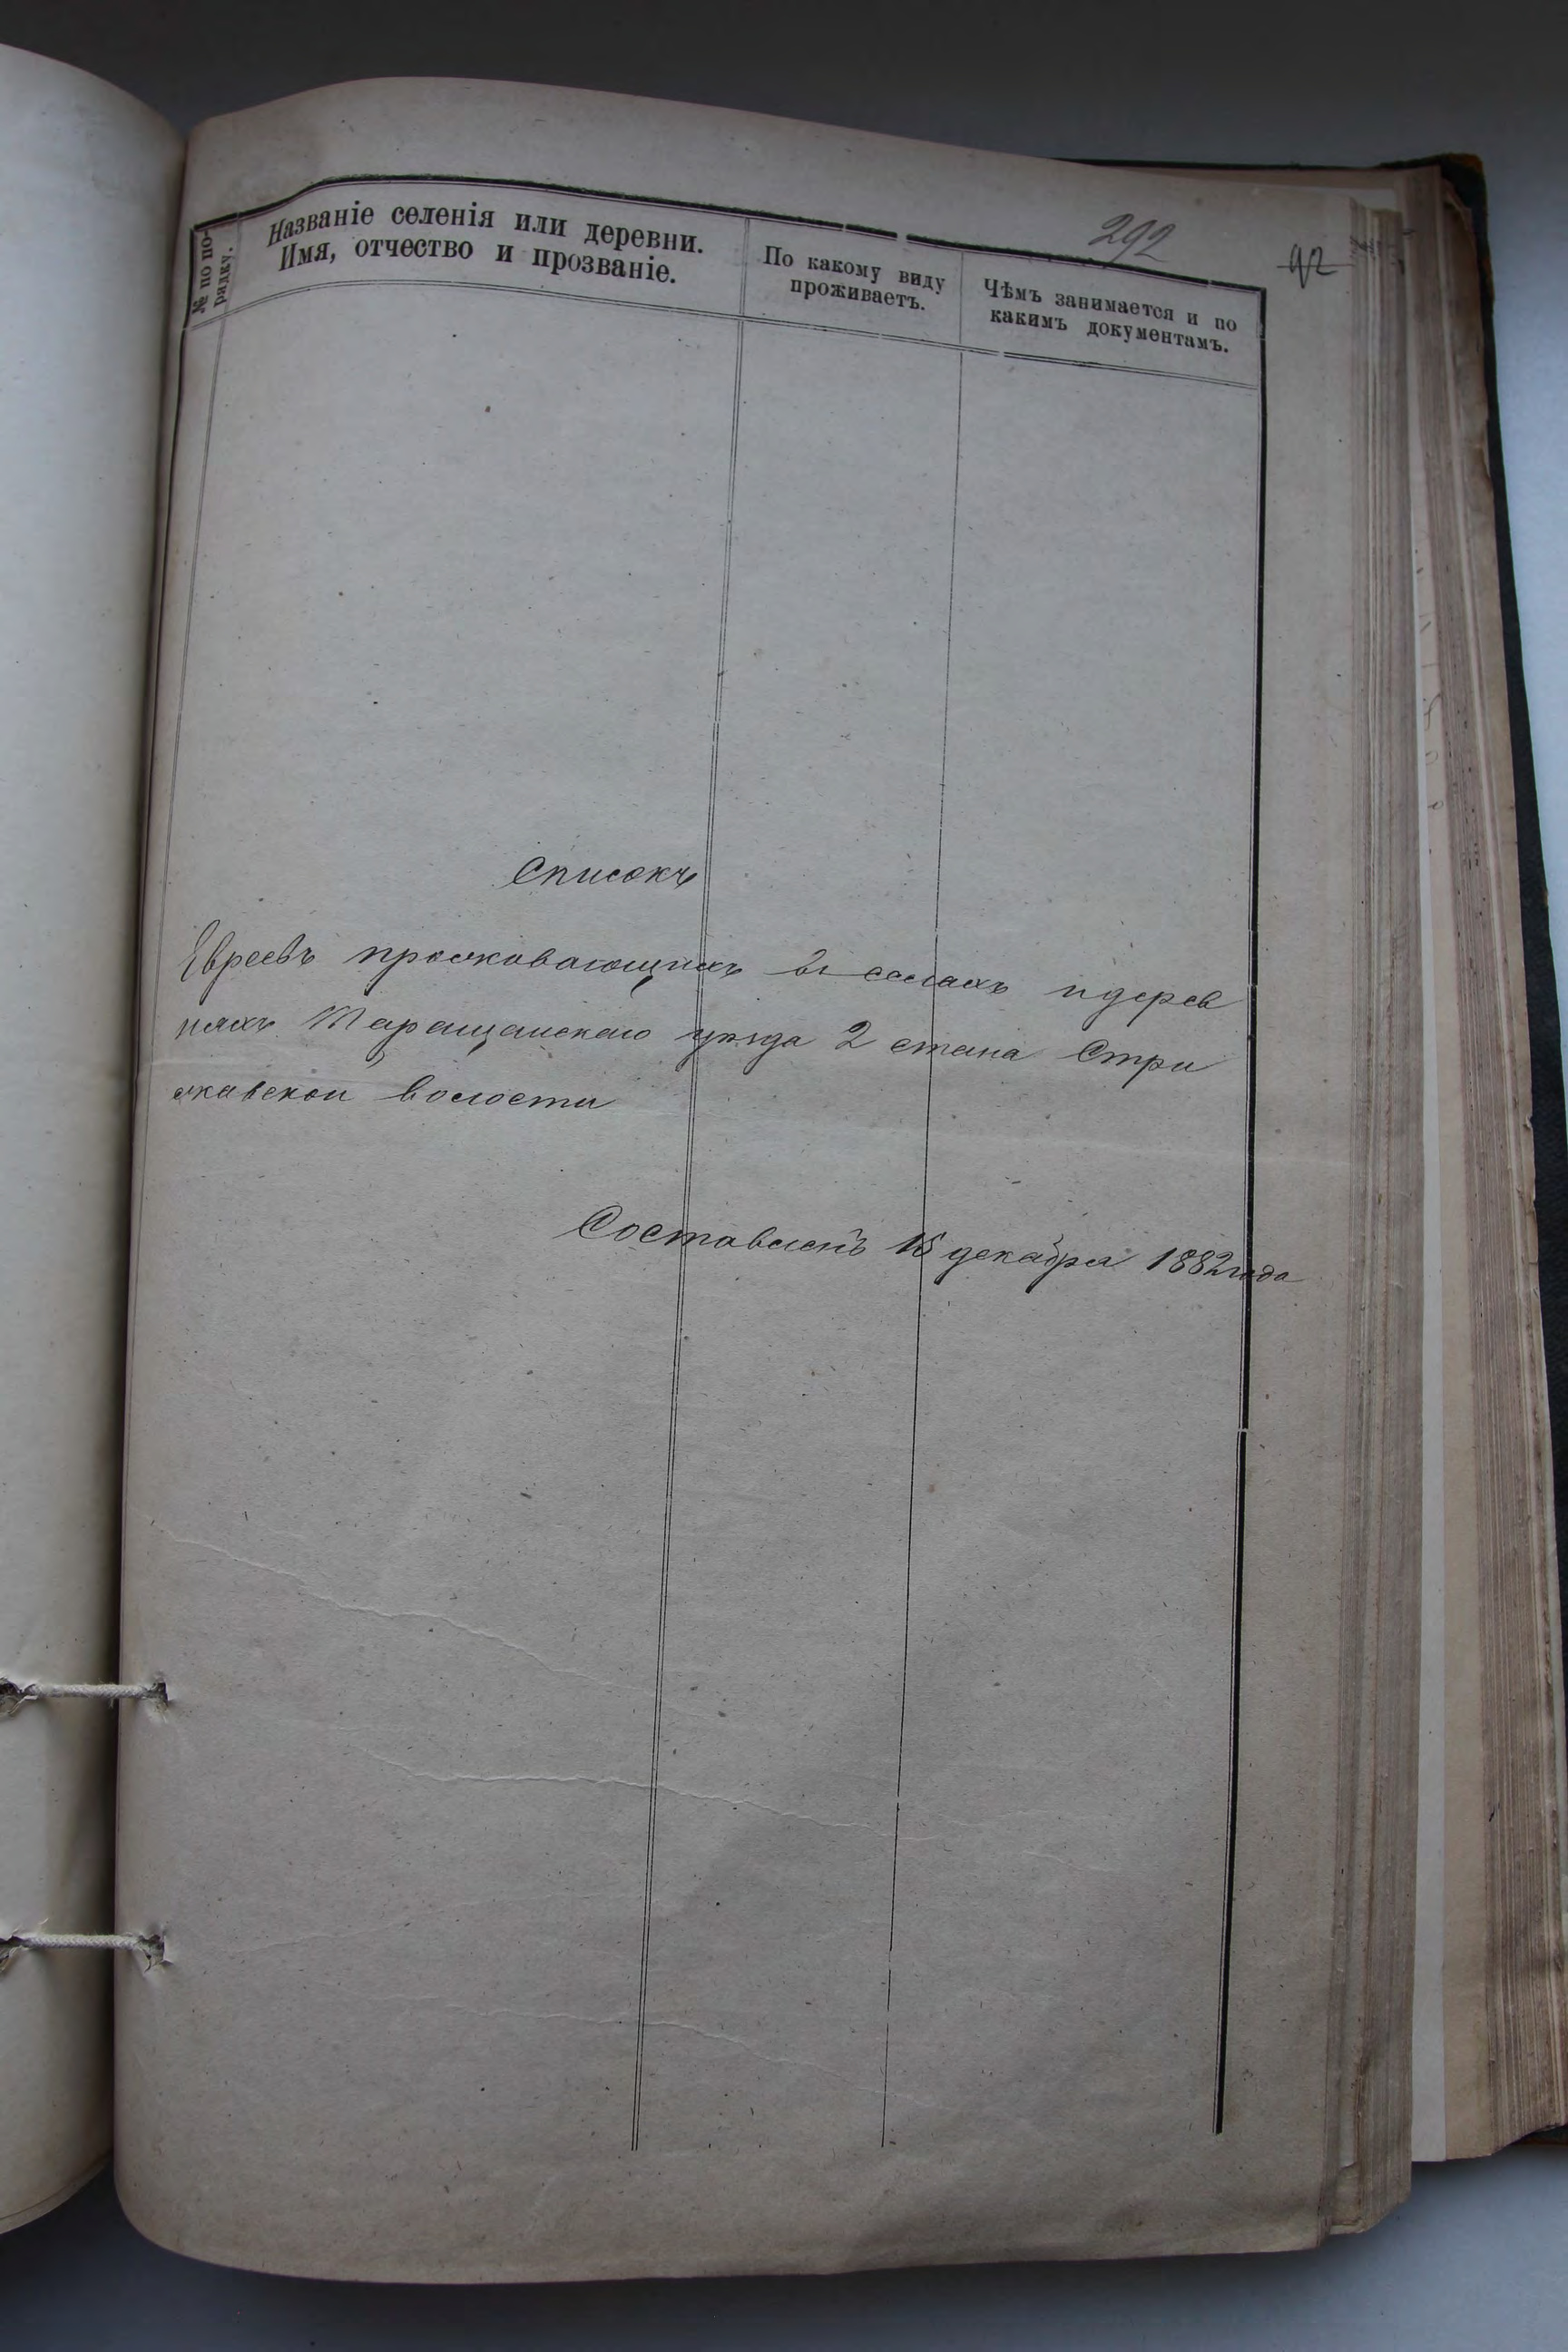 292
92
№ по по-
рядку.
Названіе селенія или деревни.
Имя, отчество и прозваніе.
По какому виду
проживаетъ.
Чѣмъ занимается и по
какимъ документамъ.
Списокъ
Евреевъ проживающихъ въ селахъ и дерев
няхъ Таращанскаго уѣзда 2 стана Стри
жавскои волости
Составленъ 15 декабря 1882 года